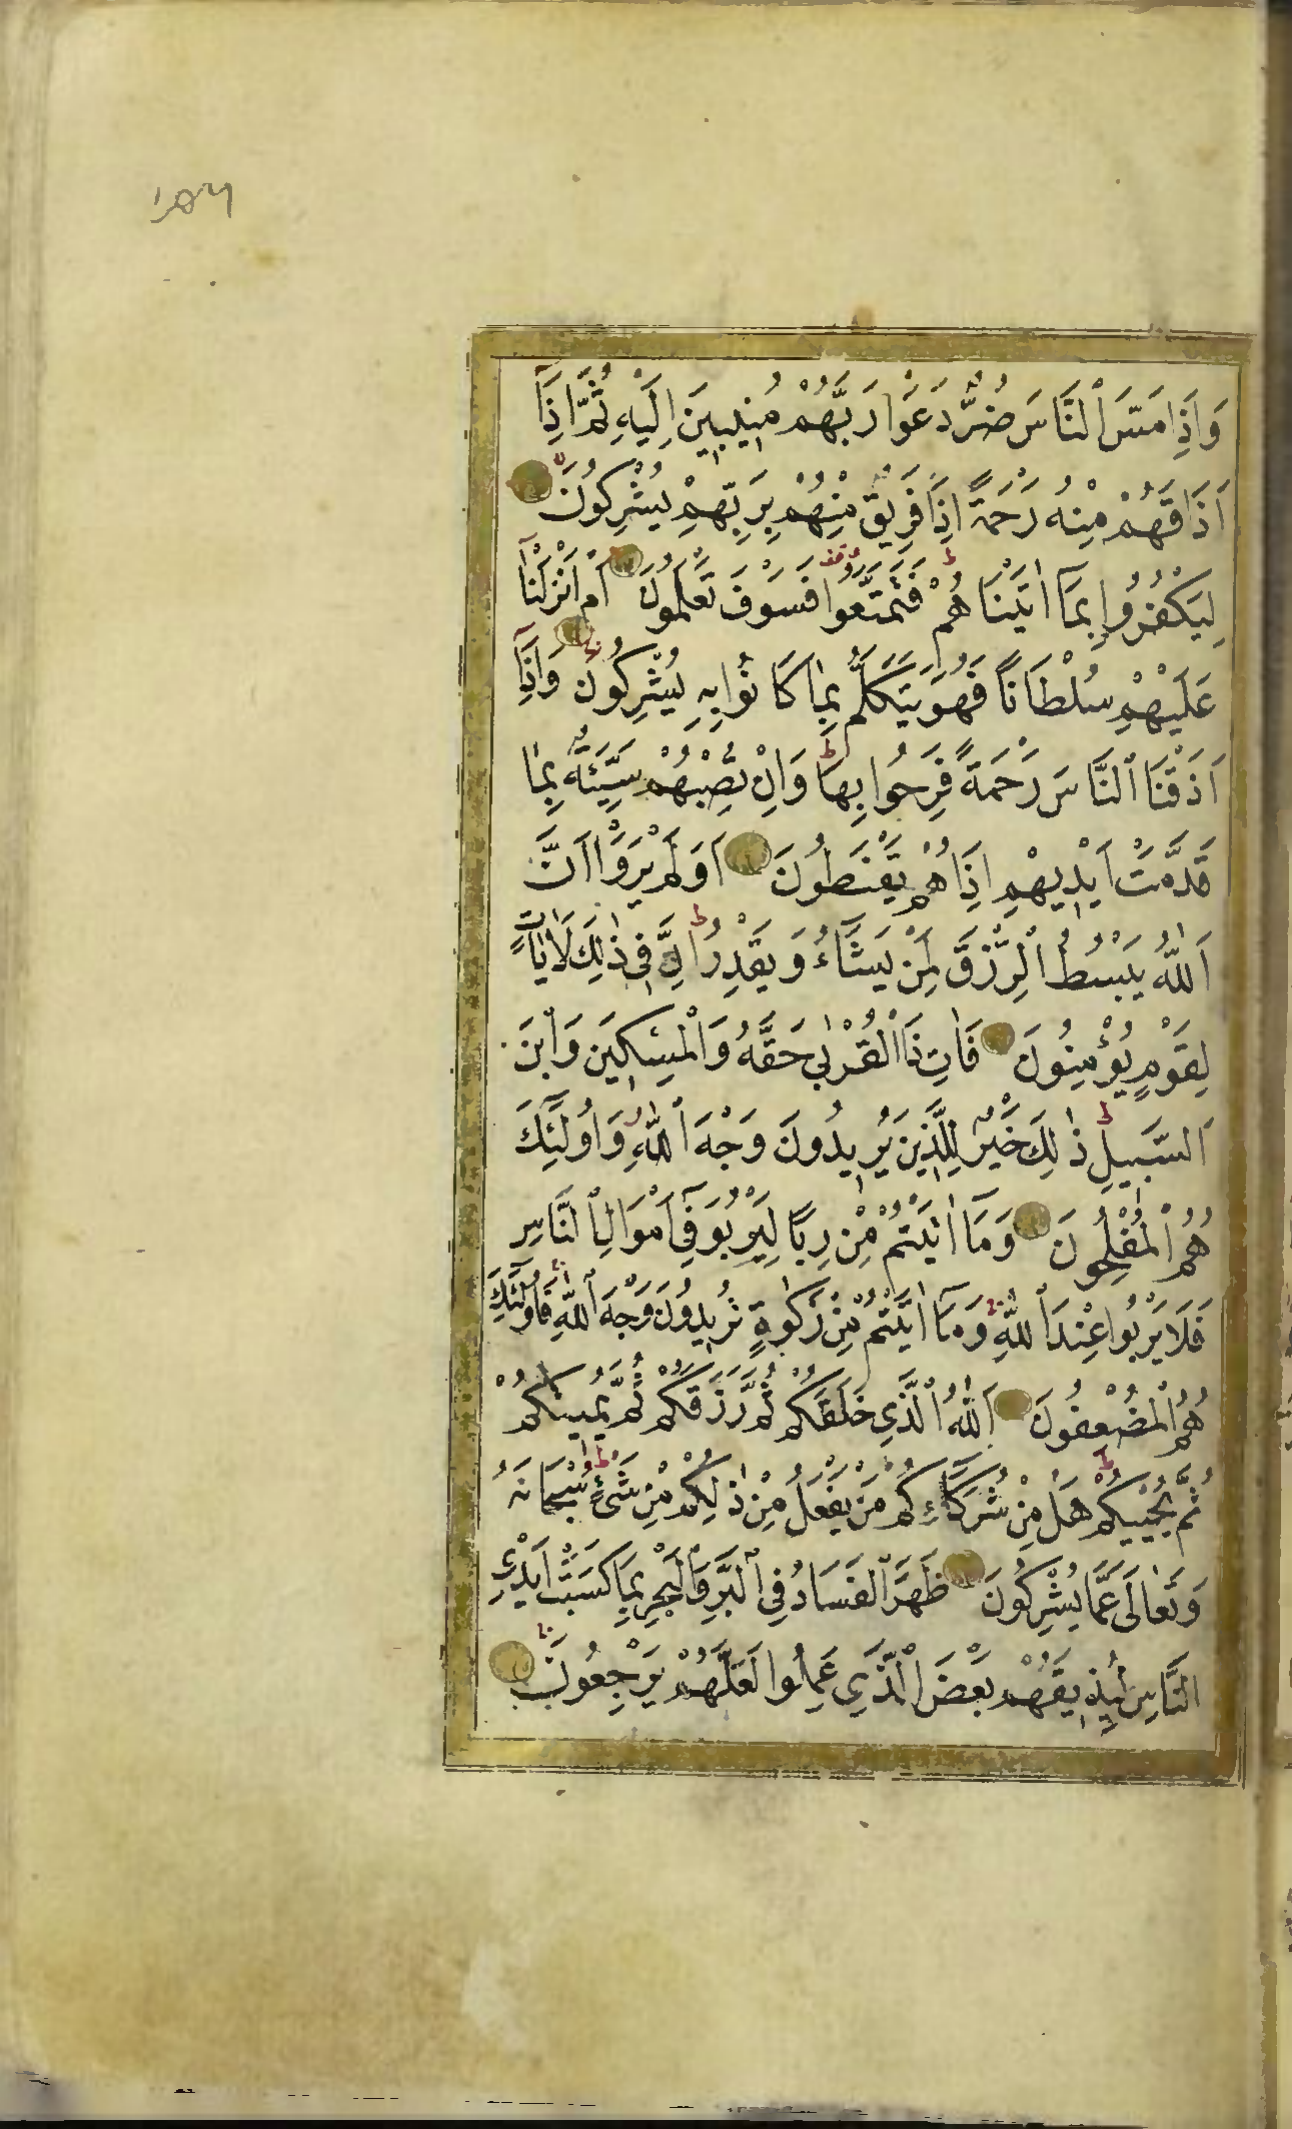 وَاِذَا مَسَّ ٱلنَّاسَ ضُرٌّ دَعَوْا رَبَّهُمْ مُنِيبِينَ اِلَيْهِ ثُمَّ اِذَآ
اَذَاقَهُمْ مِنْهُ رَحْمَةً اِذَا فَرِيقٌ مِنْهُمْ بِرَبِّهِمْ يُشْرِكُونَ
لِيَكْفُرُوا بِمَآ اٰتَيْنَاهُمْ فَتَمَتَّعُوا فَسَوْفَ تَعْلَمُونَ اَمْ اَنْزَلْنَا
عَلَيْهِمْ سُلْطَانًا فَهُوَ يَتَكَلَّمُ بِمَا كَانُوا بِهِ يُشْرِكُونَ وَاِذَآ
اَذَقْنَا ٱلنَّاسَ رَحْمَةً فَرِحُوا بِهَا وَاِنْ تُصِبْهُمْ سَيِّئَةٌ بِمَا
قَدَّمَتْ اَيْدِيهِمْ اِذَا هُمْ يَقْنَطُونَ اَوَلَمْ يَرَوْا اَنَّ
اَللّٰهَ يَبْسُطُ ٱلرِّزْقَ لِمَنْ يَشَآءُ وَيَقْدِرُ اِنَّ فِي ذٰلِكَ لَاٰيَاتٍ
لِقَوْمٍ يُؤْمِنُونَ فَاٰتِ ذَا ٱلْقُرْبٰى حَقَّهُ وَٱلْمِسْكِينَ وَٱبْنَ
اَلسَّبِيلِ ذٰلِكَ خَيْرٌ لِلَّذِينَ يُرِيدُونَ وَجْهَ ٱللّٰهِ وَاُولٰٓئِكَ
هُمُ ٱلْمُفْلِحُونَ وَمَآ اٰتَيْتُمْ مِنْ رِبًا لِيَرْبُوَ فِٓي اَمْوَالِ ٱلنَّاسِ
فَلَا يَرْبُوا عِنْدَ ٱللّٰهِ وَمَآ اٰتَيْتُمْ مِنْ زَكٰوةٍ تُرِيدُونَ وَجْهَ ٱللّٰهِ فَاُولٰٓئِكَ
هُمُ ٱلْمُضْعِفُونَ اَللّٰهُ ٱلَّذِي خَلَقَكُمْ ثُمَّ رَزَقَكُمْ ثُمَّ يُمِيتُكُمْ
ثُمَّ يُحْيِيكُمْ هَلْ مِنْ شُرَكَآئِكُمْ مَنْ يَفْعَلُ مِنْ ذٰلِكُمْ مِنْ شَيْءٍ سُبْحَانَهُ
وَتَعَالٰى عَمَّا يُشْرِكُونَ ظَهَرَ ٱلْفَسَادُ فِي ٱلْبَرِّ وَٱلْبَحْرِ بِمَا كَسَبَتْ اَيْدِي
ٱلنَّاسِ لِيُذِيقَهُمْ بَعْضَ ٱلَّذِي عَمِلُوا لَعَلَّهُمْ يَرْجِعُونَ